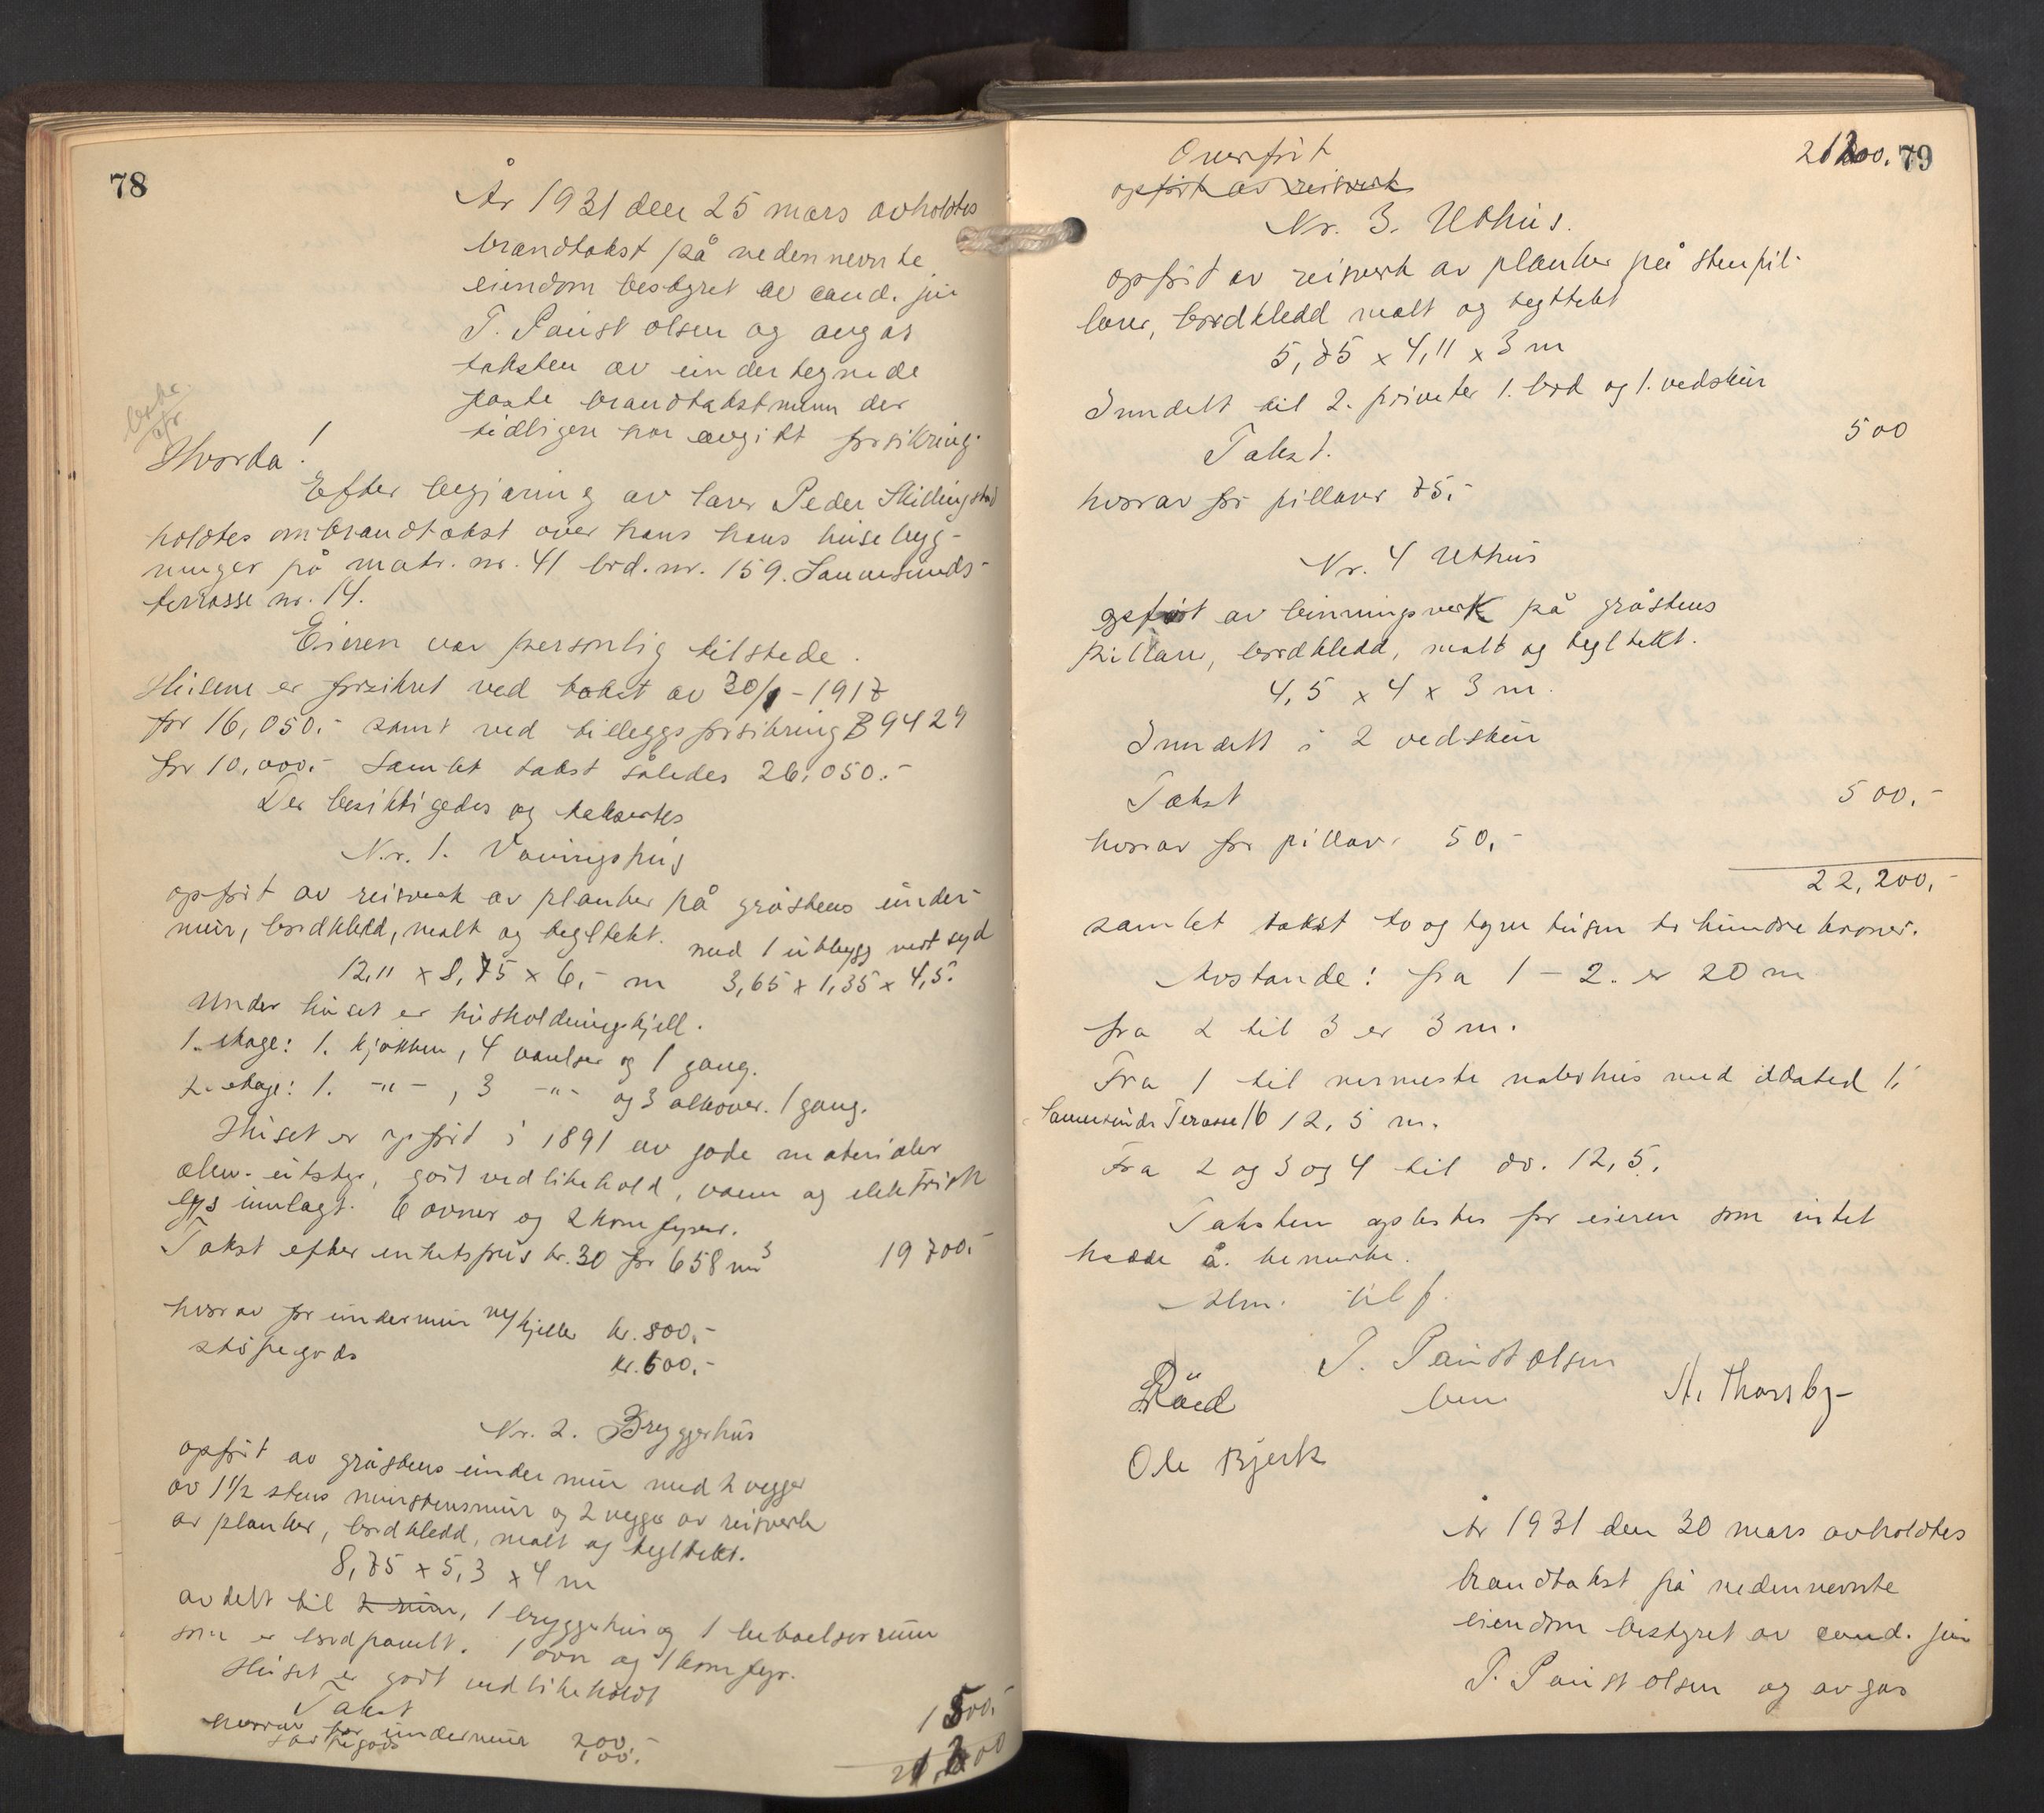 78
År 1931 den 25 mars avholdtes
brandtakst på nedennevnte
eiendom bestyret av cand. jur
T. Paust olsen og avgas
taksten av undertegnede
faste brandtakstmenn der
tidligere har avgitt forsikring.
Hvorda!
Efter begjæring av lærer Peder Skillingstad
holdtes ombrandtakst over hans hans husebygg-
ninger på matr. nr. 41 brd. nr. 159. Lannesunds-
terrasse nr. 14.
Eieren var personlig tilstede.
Husene er forsikret ved takst av 30/1 - 1917
for 16,050.- samt ved tilleggsforsikring B 9429
for 10,000.- Samlet takst således 26,050.-
Der besiktigedes og taksertes
Nr. 1. Våningshus
opført av reisverk av planker på gråstens under-
mur, bordkledd, malt og tegltekt. med 1 utbygg mot syd
12,11 x 8,75 x 6,- m 3,65 x 1,35 x 4,5.
Under huset er husholdningskjell.
1. etage: 1. kjøkken, 4 værelser og 1 gang.
2. etage: 1. -"- , 3 -"- og 3 alkover. 1 gang.
Huset er opført i 1891 av gode materialer
alm. utstyr, godt vedlikehold, vann og elektrisk
lys innlagt. 6 ovner og 2 komfyrer.
Takst efter enhetspris kr. 30 for 658 m³ 19700.-
hvorav for undermur m/kjeller kr. 800,-
støpegods kr. 600,-
Nr. 2. Bryggerhus
opført av gråstens under mur med 2 vegger
av 1 1/2 stens murstensmur og 2 vegger av reisverk
av planker, bordkledd, malt og tegltekt.
8,75 x 5,3 x 4 m
avdelt til 2 rum, 1 bryggerhus og 1 beboelsesrum
som er bordpanelt. 1 ovn og 1 komfyr.
Huset er godt vedlikeholdt
Takst 1500.-
hvorav for undermur 200.-
støpegods 100.
21,200
79
Overført 21200.
opført av reisverk
Nr. 3. Uthus.
opført av reisverk av planker på stenpil-
larer, bordkledd malt og tegltekt
5,75 x 4,11 x 3 m
Inndelt til 2. priveter 1. bod og 1. vedskur
Takst. 500
hvorav for pillarer 75.-
Nr. 4 Uthus
opført av binningsverk på gråstens
pillarer, bordkledd, malt og tegltekt.
4,5 x 4 x 3 m.
Inndelt i 2 vedskur
Takst 500.-
hvorav for pillar. 50,-
22,200,-
samlet takst to og tyve tusen to hundre kroner.
Avstande: fra 1 - 2. er 20 m
fra 2 til 3 er 3 m.
Fra 1 til nermeste nabohus med ildsted 1,
Lannesunds Terasse 16 12,5 m.
Fra 2 og 3 og 4 til do. 12,5.
Taksten oplestes for eieren som intet
hadde å bemerke.
T. Paust olsen
Røed A. Thorsby
Ole Bjerk
År 1931 den 30 mars avholdtes
brandtakst på nedennevnte
eiendom bestyret av cand. jur
T. Paust olsen og avgas